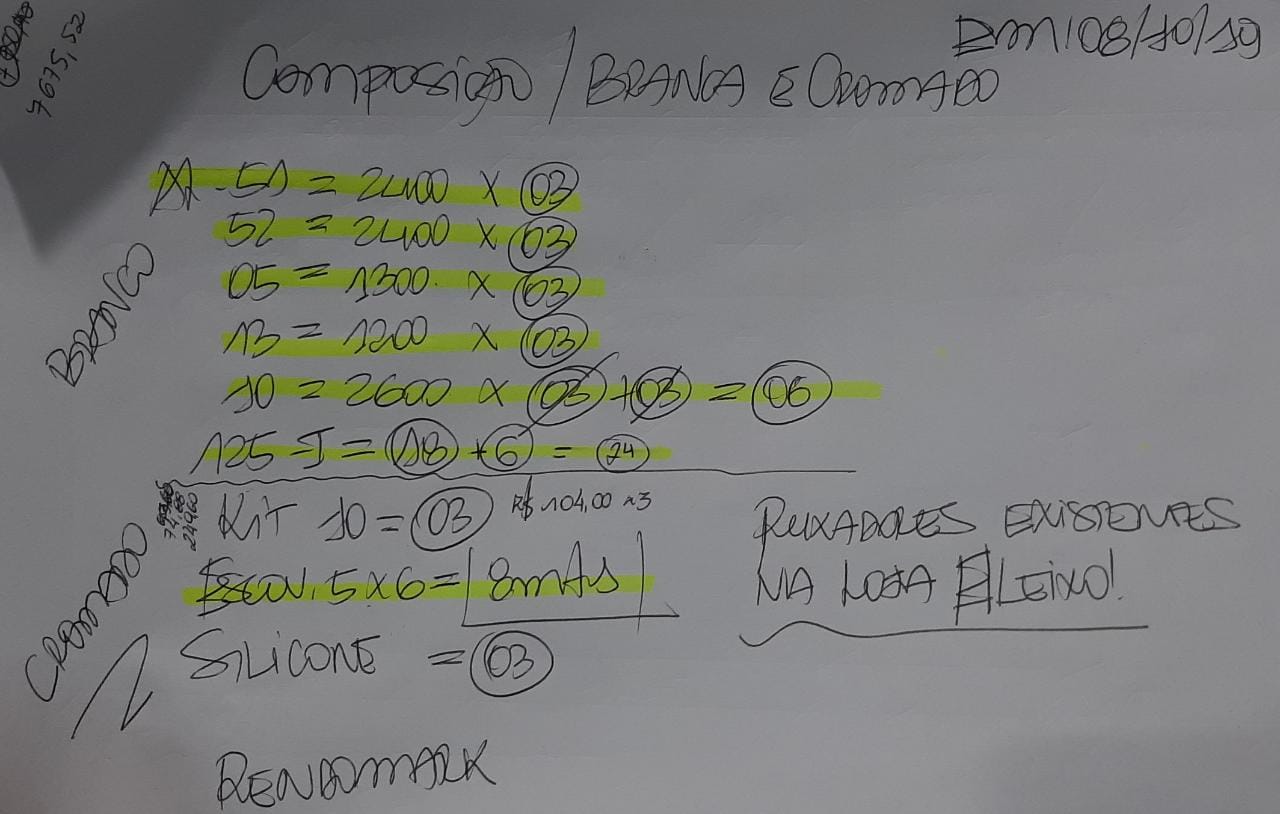 7675,52
Em 08/10/19
Composição / BRANCA E CROMADO
BRANCO
- 51 = 2400 X 03
52 = 2400 X 03
05 = 1300 X 03
13 = 1200 X 03
10 = 2600 X 03 + 03 = 06
125 - J = 18 + 6 = 24
CROMADO
KiT 10 = 03 R$ 104,00 x3
Escov. 5x6 = 8mts
SiLiCONE = 03
PUXADORES EXISTENTES
NA LOJA E LEiXO!
RENDOMARK